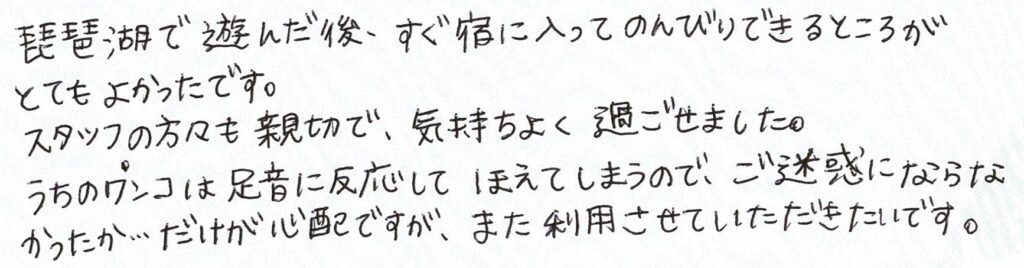 琵琶湖で遊んだ後、すぐ宿に入ってのんびりできるところが
とてもよかったです。
スタッフの方々も親切で、気持ちよく過ごせました。
うちのワンコは足音に反応してほえてしまうので、ご迷惑にならな
かったか…だけが心配ですが、また利用させていただきたいです。